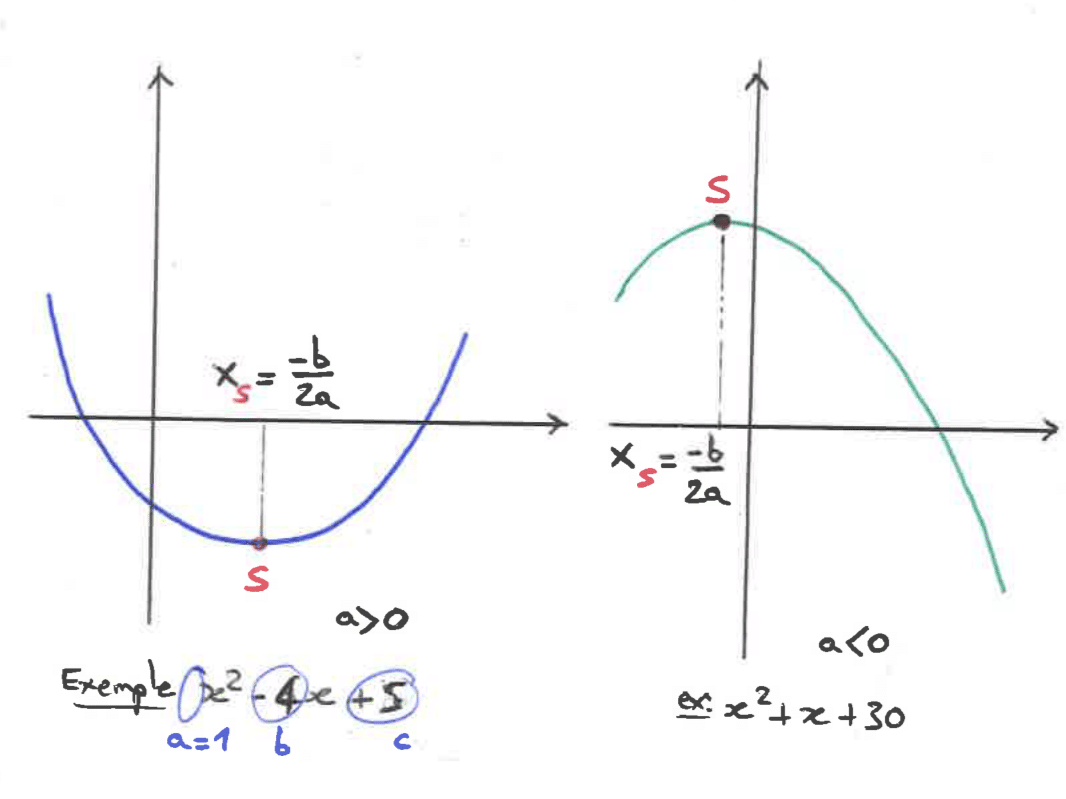 x_s = -b/2a
S
a>0
Exemple x² - 4x + 5
a=1 b c
S
x_s = -b/2a
a<0
ex: x² + x + 30